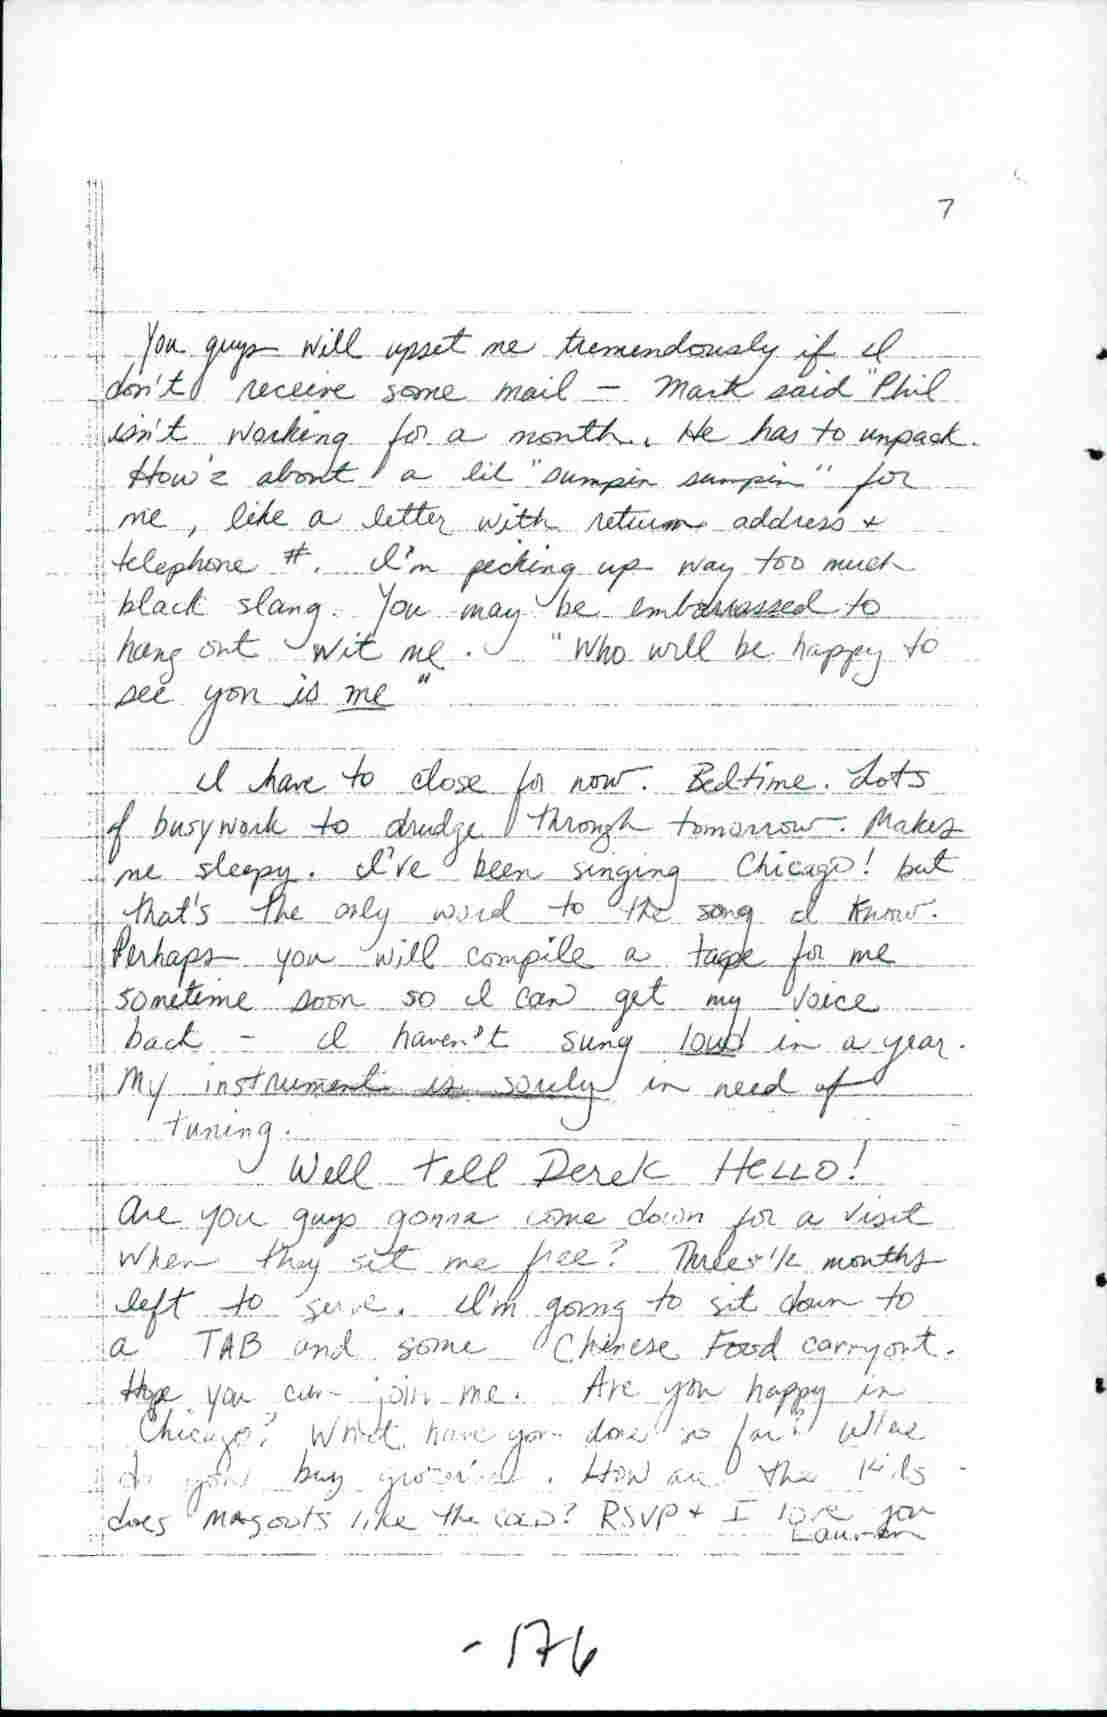 7
You guys will upset me tremendously if I
don't receive some mail - Mark said "Phil
isn't working for a month. He has to unpack.
How'z about a lil "sumpin sumpin" for
me, like a letter with return address +
telephone #. I'm picking up way too much
black slang. You may be embarrassed to
hang out wit me. "Who will be happy to
see you is me"
I have to close for now. Bedtime. Lots
of busywork to drudge through tomorrow. Makes
me sleepy. I've been singing Chicago! but
that's the only word to the song I know.
Perhaps you will compile a tape for me
sometime soon so I can get my voice
back - I haven't sung loud in a year.
My instrument is sorely in need of
tuning.
Well tell Derek HELLO!
Are you guys gonna come down for a visit
when they sit me free? Three months
left to serve. I'm going to sit down to
a TAB and some Chinese Food carryout.
Hope you can join me. Are you happy in
Chicago? What have you done so far? Where
do you buy groceries. How are the kids
does Magouts like the? RSVP + I love you
Lauren
-176